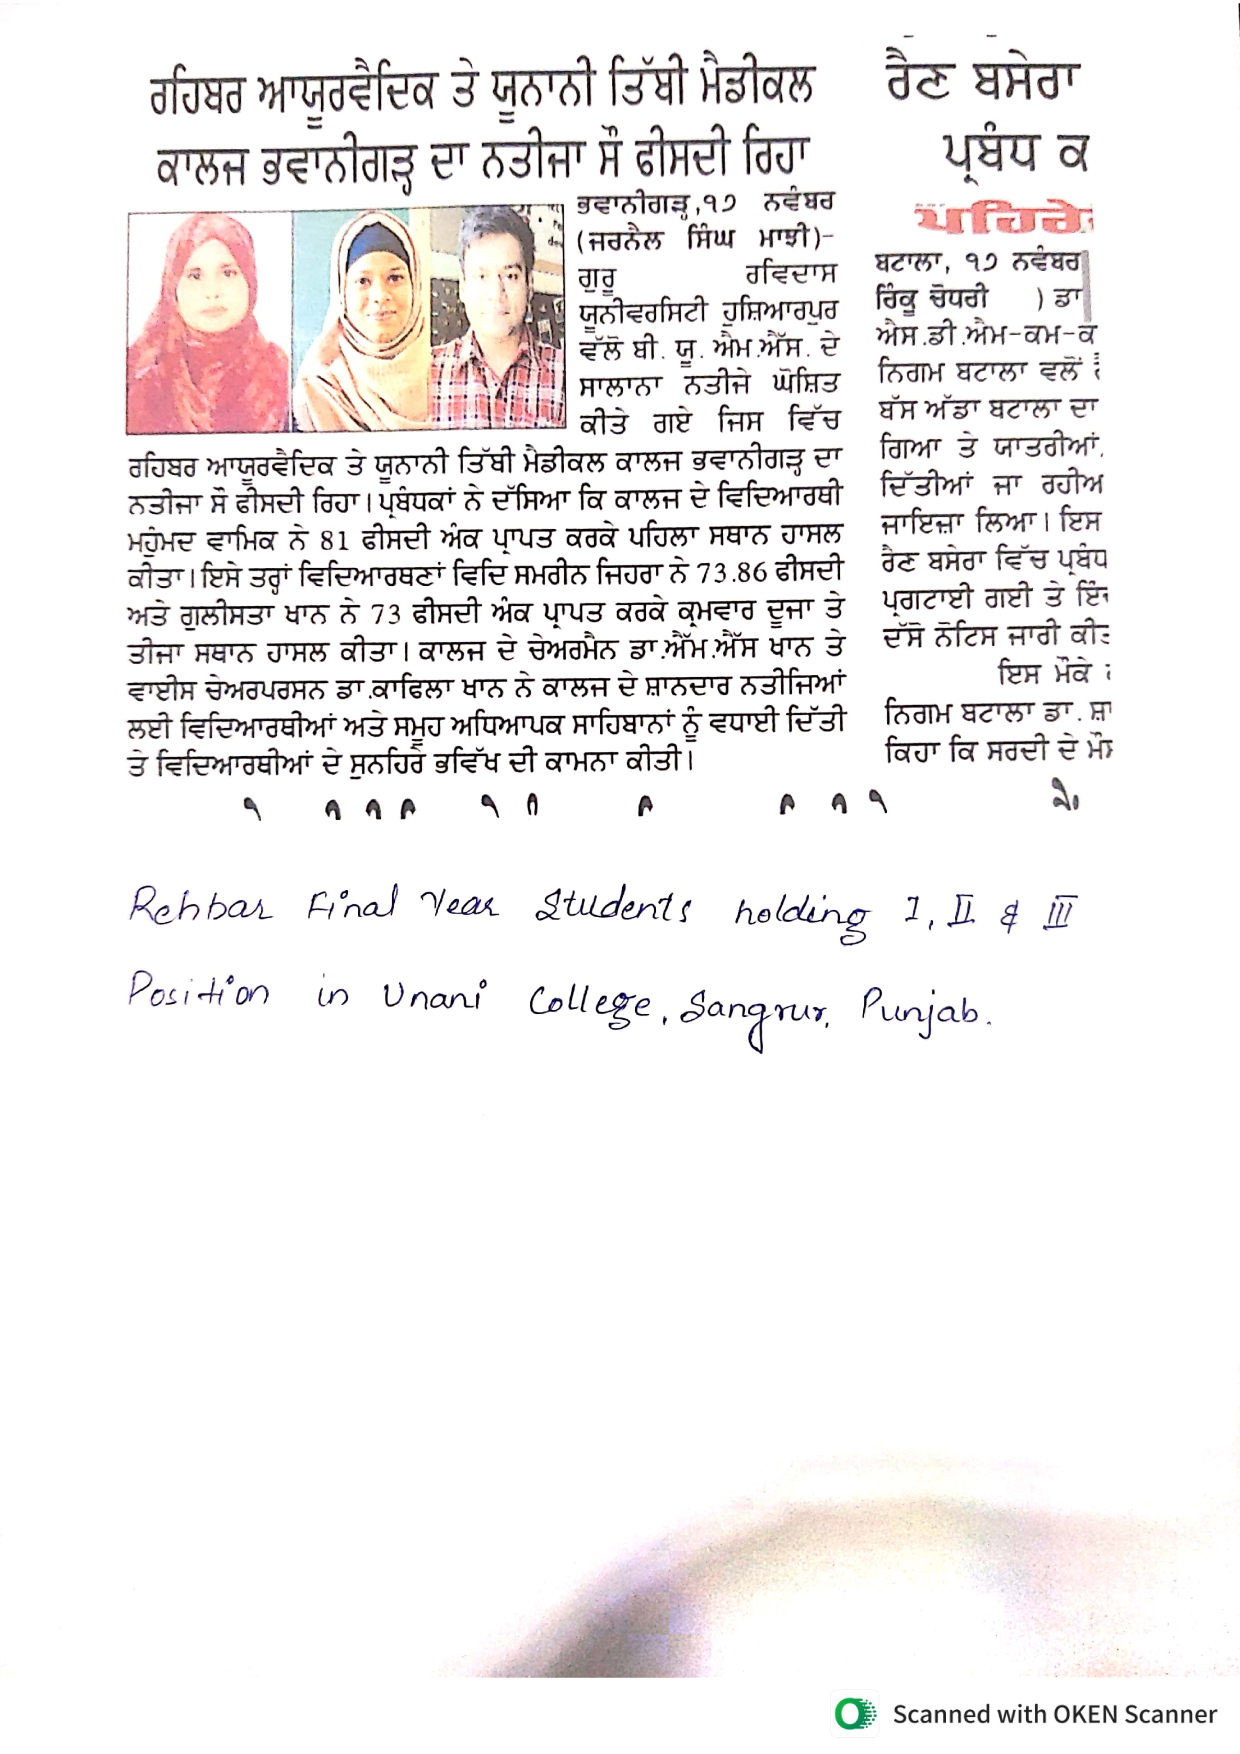 ਰਹਿਬਰ ਆਯੂਰਵੈਦਿਕ ਤੇ ਯੂਨਾਨੀ ਤਿੱਬੀ ਮੈਡੀਕਲ
ਕਾਲਜ ਭਵਾਨੀਗੜ੍ਹ ਦਾ ਨਤੀਜਾ ਸੌ ਫੀਸਦੀ ਰਿਹਾ
ਭਵਾਨੀਗੜ੍ਹ,੧੭ ਨਵੰਬਰ
(ਜਰਨੈਲ ਸਿੰਘ ਮਾਝੀ)-
ਗੁਰੂ ਰਵਿਦਾਸ
ਯੂਨੀਵਰਸਿਟੀ ਹੁਸ਼ਿਆਰਪੁਰ
ਵੱਲੋ ਬੀ. ਯੂ. ਐਮ.ਐੱਸ. ਦੇ
ਸਾਲਾਨਾ ਨਤੀਜੇ ਘੋਸ਼ਿਤ
ਕੀਤੇ ਗਏ ਜਿਸ ਵਿੱਚ
ਰਹਿਬਰ ਆਯੂਰਵੈਦਿਕ ਤੇ ਯੂਨਾਨੀ ਤਿੱਬੀ ਮੈਡੀਕਲ ਕਾਲਜ ਭਵਾਨੀਗੜ੍ਹ ਦਾ
ਨਤੀਜਾ ਸੌ ਫੀਸਦੀ ਰਿਹਾ। ਪ੍ਰਬੰਧਕਾਂ ਨੇ ਦੱਸਿਆ ਕਿ ਕਾਲਜ ਦੇ ਵਿਦਿਆਰਥੀ
ਮਹੁੰਮਦ ਵਾਮਿਕ ਨੇ 81 ਫੀਸਦੀ ਅੰਕ ਪ੍ਰਾਪਤ ਕਰਕੇ ਪਹਿਲਾ ਸਥਾਨ ਹਾਸਲ
ਕੀਤਾ। ਇਸੇ ਤਰ੍ਹਾਂ ਵਿਦਿਆਰਥਣਾਂ ਵਿਦਿ ਸਮਰੀਨ ਜਿਹਰਾ ਨੇ 73.86 ਫੀਸਦੀ
ਅਤੇ ਗੁਲੀਸਤਾ ਖਾਨ ਨੇ 73 ਫੀਸਦੀ ਅੰਕ ਪ੍ਰਾਪਤ ਕਰਕੇ ਕ੍ਰਮਵਾਰ ਦੂਜਾ ਤੇ
ਤੀਜਾ ਸਥਾਨ ਹਾਸਲ ਕੀਤਾ। ਕਾਲਜ ਦੇ ਚੇਅਰਮੈਨ ਡਾ.ਐੱਮ.ਐੱਸ ਖਾਨ ਤੇ
ਵਾਈਸ ਚੇਅਰਪਰਸਨ ਡਾ.ਕਾਫਿਲਾ ਖਾਨ ਨੇ ਕਾਲਜ ਦੇ ਸ਼ਾਨਦਾਰ ਨਤੀਜਿਆਂ
ਲਈ ਵਿਦਿਆਰਥੀਆਂ ਅਤੇ ਸਮੂਹ ਅਧਿਆਪਕ ਸਾਹਿਬਾਨਾਂ ਨੂੰ ਵਧਾਈ ਦਿੱਤੀ
ਤੇ ਵਿਦਿਆਰਥੀਆਂ ਦੇ ਸੁਨਹਿਰੇ ਭਵਿੱਖ ਦੀ ਕਾਮਨਾ ਕੀਤੀ।
ਰੈਣ ਬਸੇਰਾ
ਪ੍ਰਬੰਧ ਕ
ਪਹਿਰੇ
ਬਟਾਲਾ, ੧੭ ਨਵੰਬਰ
ਰਿੰਕੂ ਚੋਧਰੀ ) ਡਾ
ਐਸ.ਡੀ.ਐਮ-ਕਮ-ਕ
ਨਿਗਮ ਬਟਾਲਾ ਵਲੋਂ
ਬੱਸ ਅੱਡਾ ਬਟਾਲਾ ਦਾ
ਗਿਆ ਤੇ ਯਾਤਰੀਆਂ
ਦਿੱਤੀਆਂ ਜਾ ਰਹੀਅ
ਜਾਇਜ਼ਾ ਲਿਆ। ਇਸ
ਰੈਣ ਬਸੇਰਾ ਵਿੱਚ ਪ੍ਰਬੰਧ
ਪ੍ਰਗਟਾਈ ਗਈ ਤੇ ਇੰ
ਦੱਸੋ ਨੋਟਿਸ ਜਾਰੀ ਕੀਤ
ਇਸ ਮੌਕੇ
ਨਿਗਮ ਬਟਾਲਾ ਡਾ. ਸ਼ਾ
ਕਿਹਾ ਕਿ ਸਰਦੀ ਦੇ ਮੌਸ
Rehbar Final Year Students holding I, II & III
Position in Unani College, Sangrur, Punjab.
Scanned with OKEN Scanner